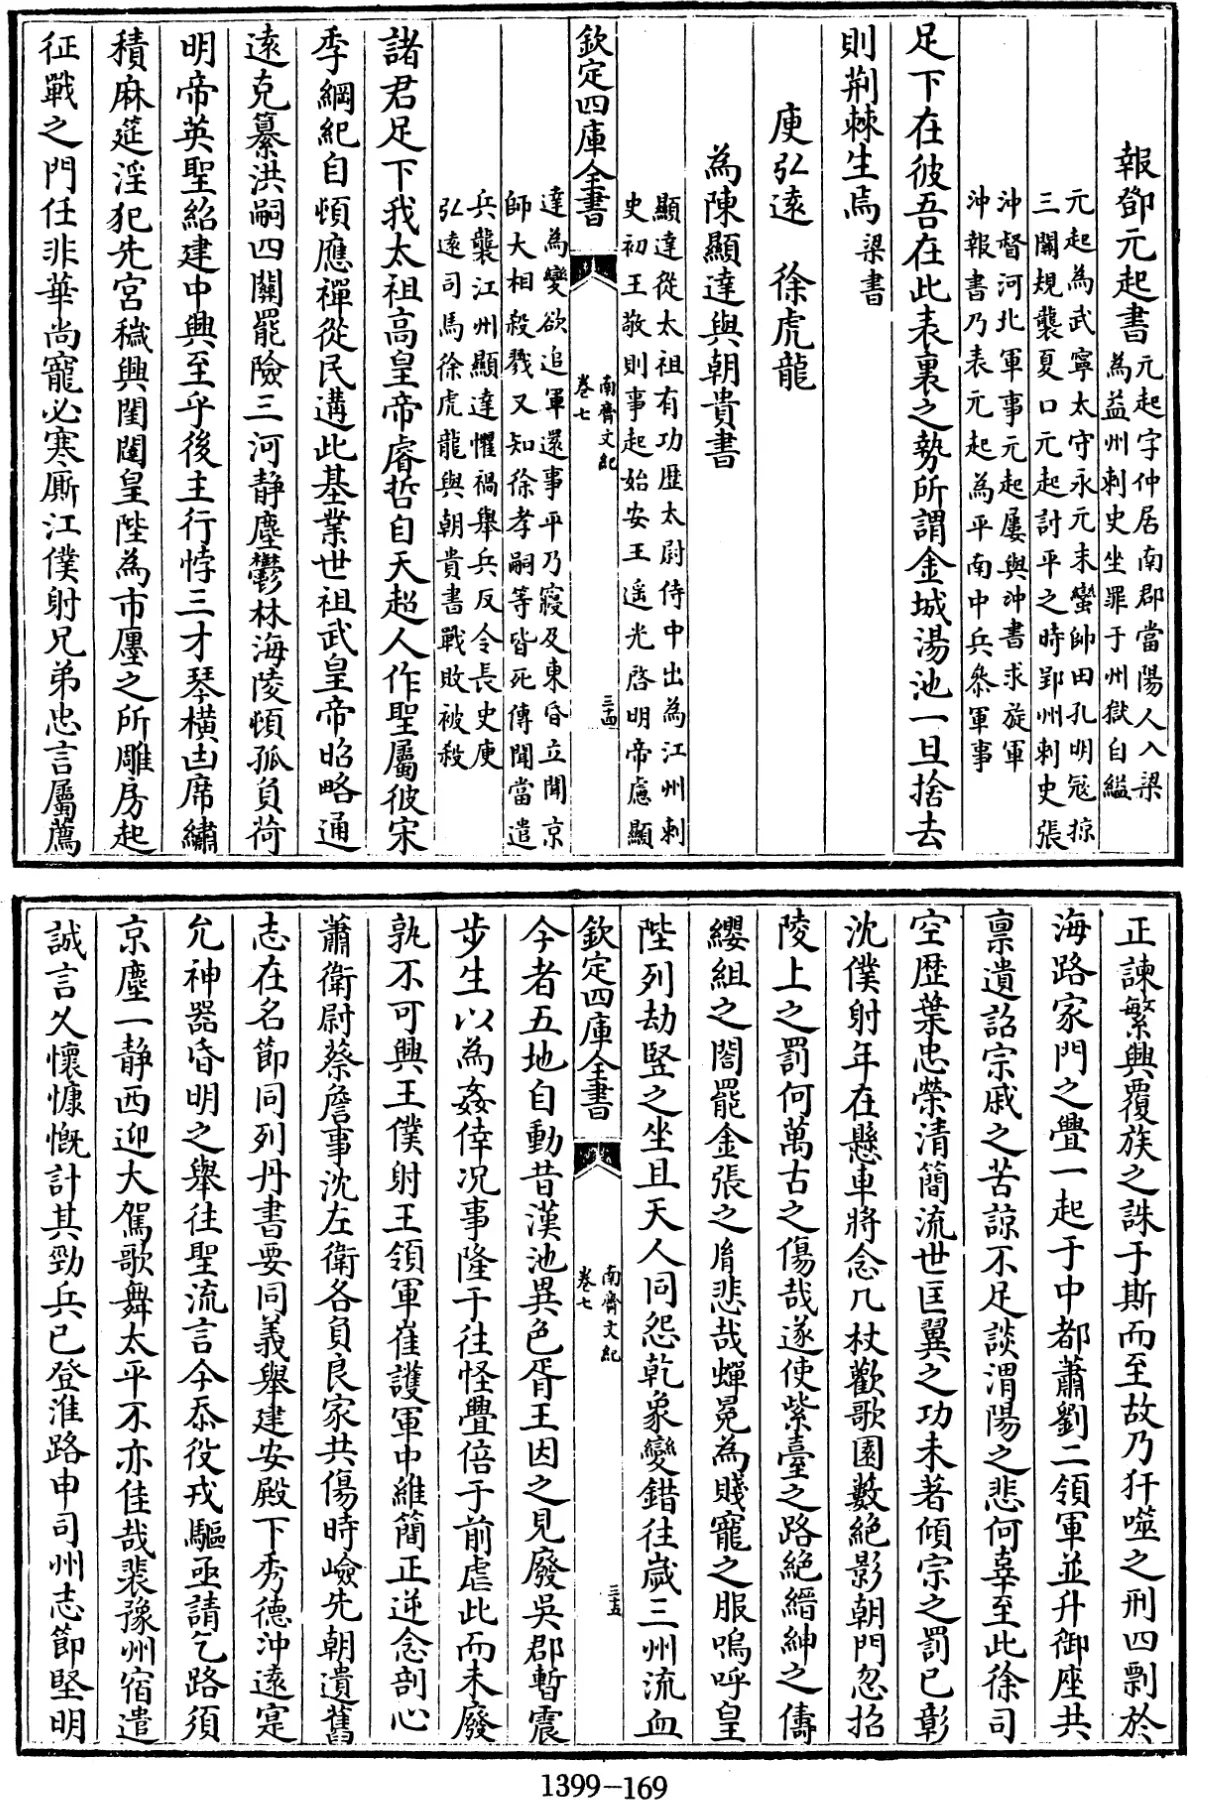 報鄧元起書元起字仲居南郡當陽人入梁
為益州刺史坐罪于州獄自縊
元起為武寧太守永元末蠻帥田孔明冦掠
三關規襲夏口元起討平之時郢州刺史張
沖督河北軍事元起屢與沖書求旋軍
沖報書乃表元起為平南中兵叅軍事
足下在彼吾在此表裏之勢所謂金城湯池一旦捨去
則荆棘生焉梁書
庾弘遠　徐虎龍
為陳顯達與朝貴書
顯達從太祖有功歴太尉侍中出為江州刺
史初王敬則事起始安王遥光啓明帝慮顯
欽定四庫全書
南齊文紀
卷七
三十四
達為變欲追軍還事平乃寢及東昏立聞京
師大相殺戮又知徐孝嗣等皆死傳聞當遣
兵襲江州顯達懼禍舉兵反令長史庾
弘遠司馬徐虎龍與朝貴書戰敗被殺
諸君足下我太祖高皇帝睿哲自天超人作聖屬彼宋
季綱紀自頓應禪從民遘此基業世祖武皇帝昭略通
遠克纂洪嗣四關罷險三河静塵鬱林海陵頓孤負荷
明帝英聖紹建中興至乎後主行悖三才琴横凷席繡
積麻筵淫犯先宫穢興閨闥皇陛為市廛之所雕房起
征戰之門任非華尚寵必寒厮江僕射兄弟忠言屬薦
正諫繁興覆族之誅于斯而至故乃犴噬之刑四剽於
海路家門之釁一起于中都蕭劉二領軍並升御座共
禀遺詔宗戚之苦諒不足談渭陽之悲何辜至此徐司
空歴葉忠榮清簡流世匡翼之功未著傾宗之罰已彰
沈僕射年在懸車將念几杖歡歌園藪絶影朝門忽招
陵上之罰何萬古之傷哉遂使紫臺之路絶縉紳之儔
纓組之閣罷金張之胤悲哉蟬冕為賤寵之服嗚呼皇
陛列劫竪之坐且天人同怨乾象變錯往嵗三州流血
欽定四庫全書
南齊文紀
卷七
三十五
今者五地自動昔漢池異色胥王因之見廢吳郡暫震
步生以為姦倖况事隆于往怪釁倍于前虐此而未廢
孰不可興王僕射王領軍崔護軍中維簡正逆念剖心
蕭衛尉蔡詹事沈左衛各負良家共傷時嶮先朝遺舊
志在名節同列丹書要同義舉建安殿下秀德沖遠寔
允神器昏明之舉往聖流言今忝役戎驅亟請乞路須
京塵一静西迎大駕歌舞太平不亦佳哉裴豫州宿遣
誠言久懷慷慨計其勁兵已登淮路申司州志節堅明
1399-169